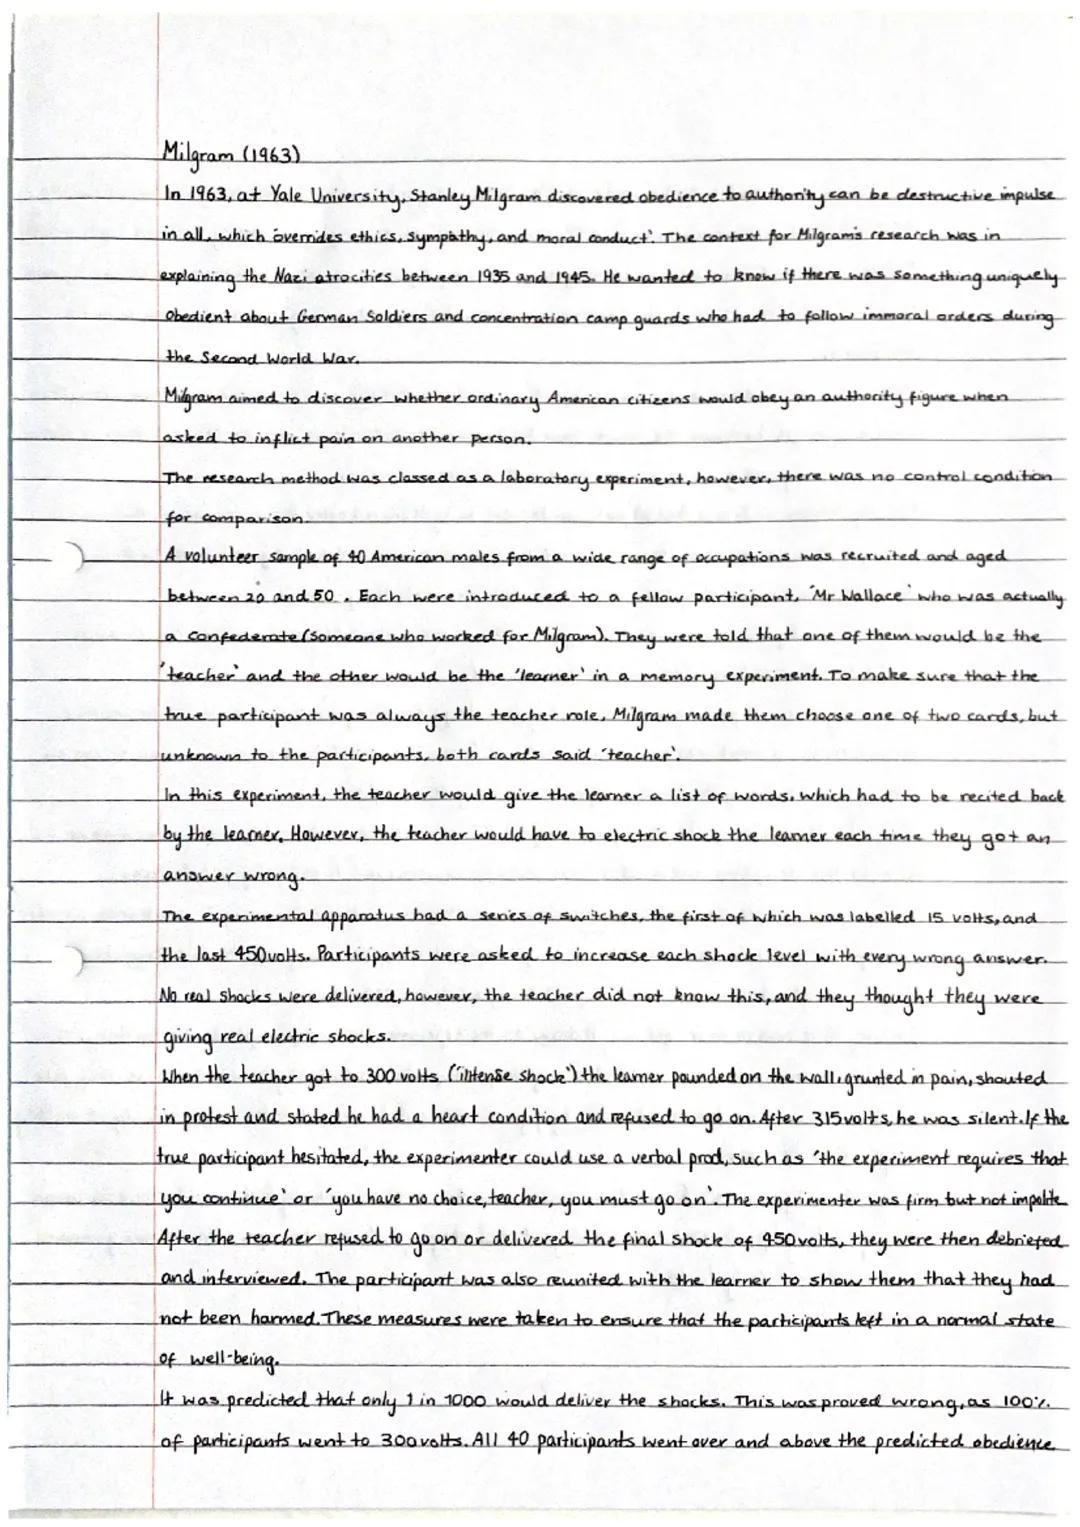 Milgram (1963)
In 1963, at Yale University, Stanley Milgram discovered obedience to authority can be destructive impulse
in all, which overrides ethics, sympathy, and moral conduct'. The context for Milgram's research was in
explaining the Nazi atrocities between 1935 and 1945. He wanted to know if there was something uniquely
obedient about German Soldiers and concentration camp guards who had to follow immoral orders during
the Second World War.
Milgram aimed to discover whether ordinary American citizens would obey an authority figure when
asked to inflict pain on another person.
The research method was classed as a laboratory experiment, however, there was no control condition
for comparison.
A volunteer sample of 40 American males from a wide range of occupations was recruited and aged
between 20 and 50. Each were introduced to a fellow participant, 'Mr Wallace' who was actually
a confederate (someone who worked for Milgram). They were told that one of them would be the
'teacher' and the other would be the 'learner' in a memory experiment. To make sure that the
true participant was always the teacher role, Milgram made them choose one of two cards, but
unknown to the participants, both cards said 'teacher'.
In this experiment, the teacher would give the learner a list of words, which had to be recited back
by the learner. However, the teacher would have to electric shock the learner each time they got an
answer wrong.
The experimental apparatus had a series of switches, the first of which was labelled 15 volts, and
the last 450 volts. Participants were asked to increase each shock level with every wrong answer.
No real shocks were delivered, however, the teacher did not know this, and they thought they were
giving real electric shocks.
When the teacher got to 300 volts ('intense shock') the learner pounded on the wall, grunted in pain, shouted
in protest and stated he had a heart condition and refused to go on. After 315 volts, he was silent. If the
true participant hesitated, the experimenter could use a verbal prod, such as 'the experiment requires that
you continue' or 'you have no choice, teacher, you must go on'. The experimenter was firm but not impolite.
After the teacher refused to go on or delivered the final shock of 450 volts, they were then debriefed
and interviewed. The participant was also reunited with the learner to show them that they had
not been harmed. These measures were taken to ensure that the participants left in a normal state
of well-being.
It was predicted that only 1 in 1000 would deliver the shocks. This was proved wrong, as 100%
of participants went to 300 volts. All 40 participants went over and above the predicted obedience